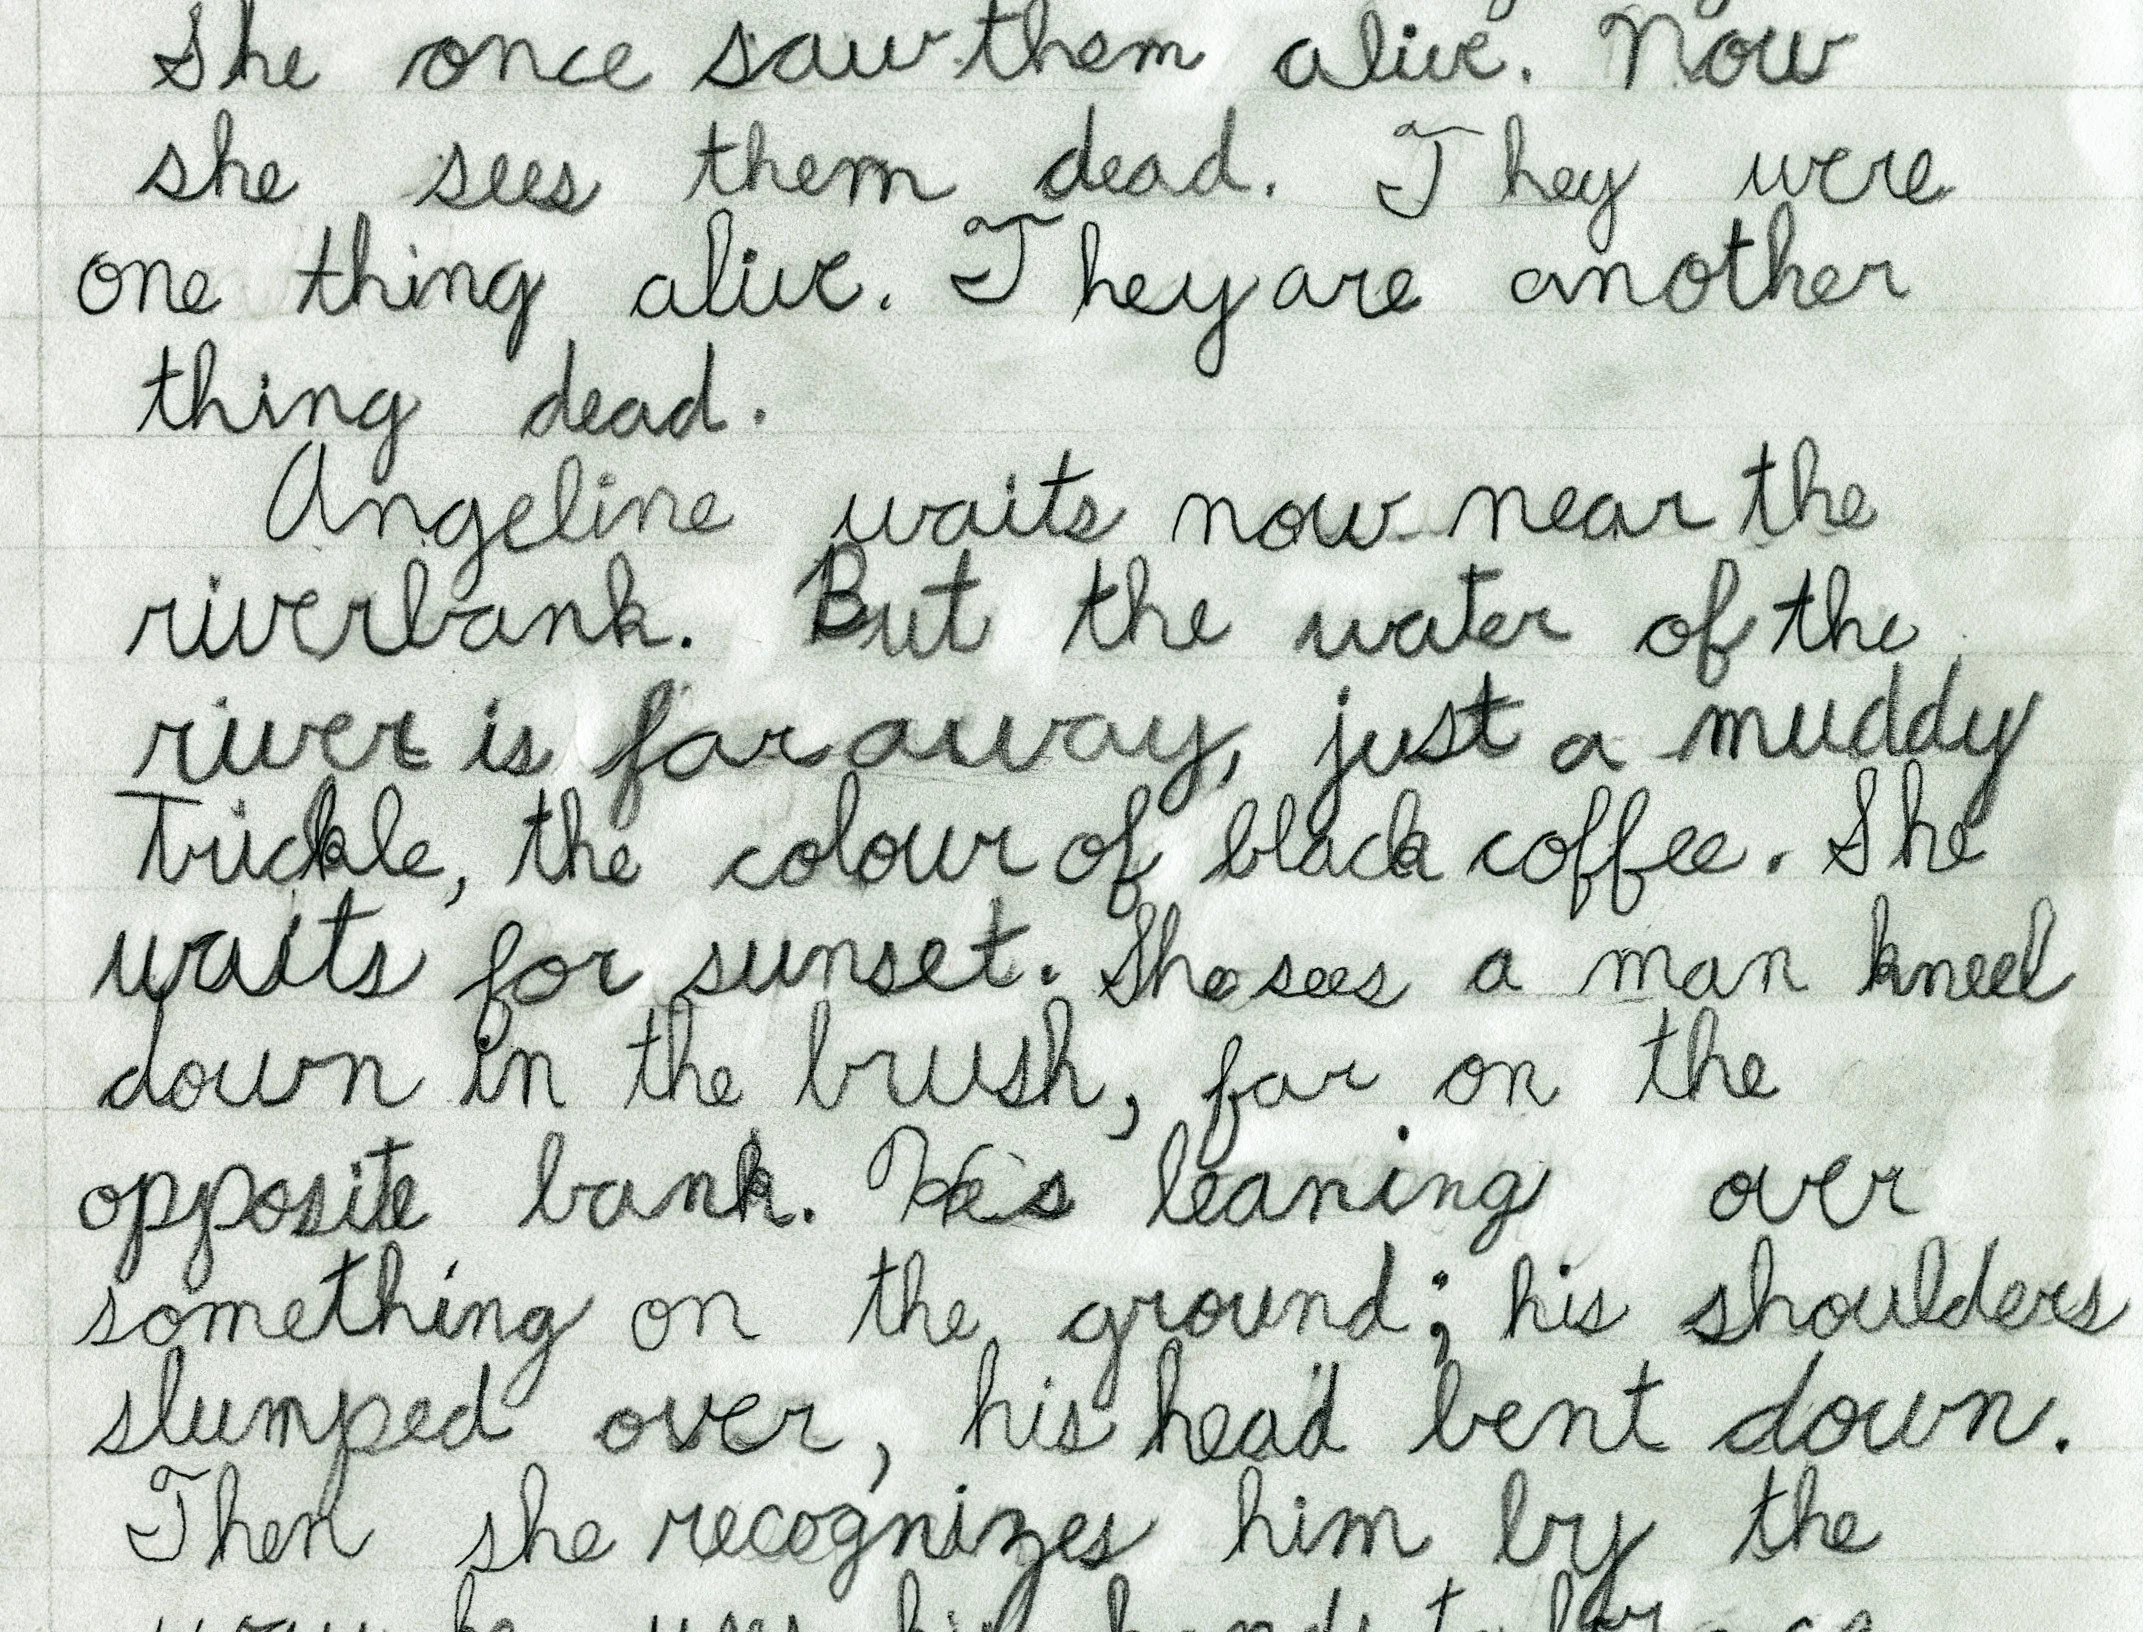 She once saw them alive. Now
she sees them dead. They were
one thing alive. They are another
thing dead.
Angeline waits now near the
riverbank. But the water of the
river is far away, just a muddy
trickle, the colour of black coffee. She
waits for sunset. She sees a man kneel
down in the brush, far on the
opposite bank. He's leaning over
something on the ground; his shoulders
slumped over, his head bent down.
Then she recognizes him by the
way he uses his hands to